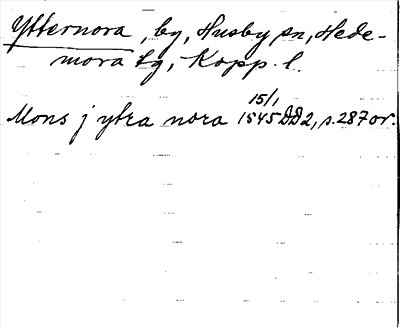 Ytternora, by, Husby sn, Hede-
mora tg, Kopp. l.
Mons j ytra nora 15/1 1545 DD2, s. 287 or.